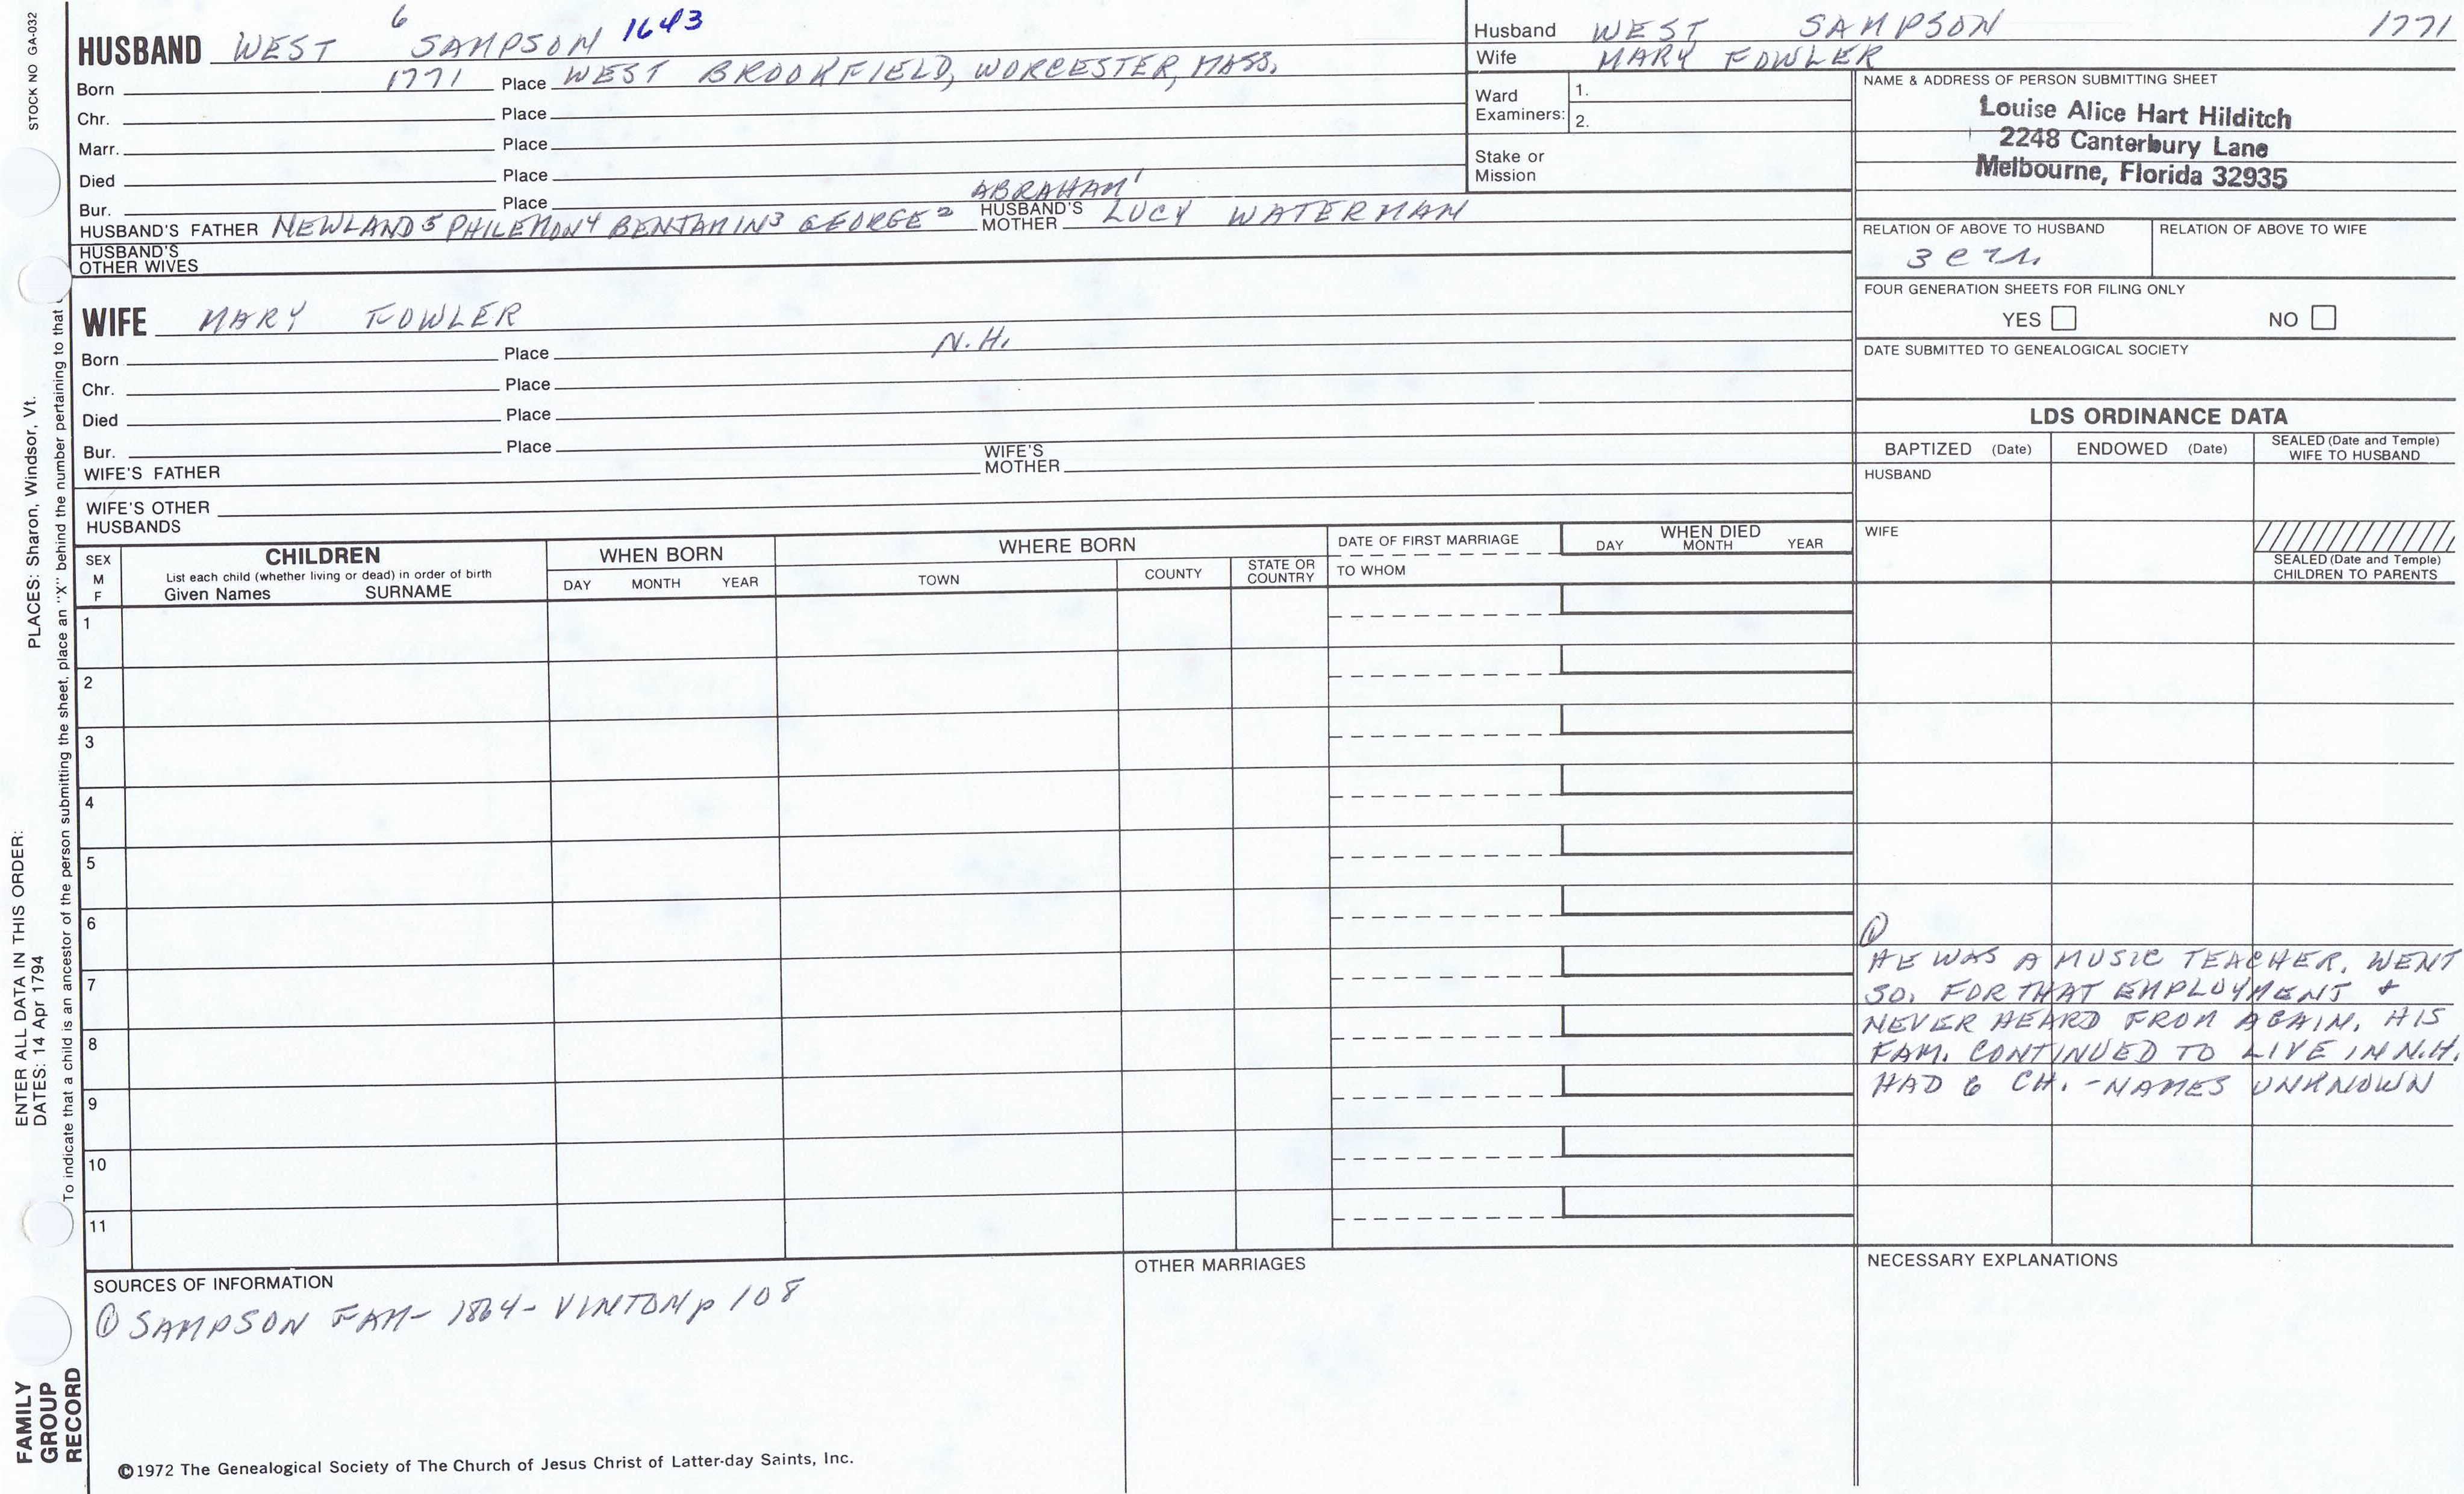 STOCK NO GA-032
HUSBAND WEST 6 SAMPSON 1643
Born 1771 Place WEST BROOKFIELD, WORCESTER, MASS.
Chr. Place
Marr. Place
Died Place
Bur. Place
ABRAHAM 1
HUSBAND'S FATHER NEWLAND 5 PHILEMON 4 BENJAMIN 3 GEORGE 2 HUSBAND'S MOTHER LUCY WATERMAN
HUSBAND'S OTHER WIVES
WIFE MARY FOWLER
Born Place N.H.
Chr. Place
Died Place
Bur. Place
WIFE'S FATHER WIFE'S MOTHER
WIFE'S OTHER HUSBANDS
Husband WEST SAMPSON 1771
Wife MARY FOWLER
Ward Examiners: 1.
2.
Stake or Mission
NAME & ADDRESS OF PERSON SUBMITTING SHEET
Louise Alice Hart Hilditch
2248 Canterbury Lane
Melbourne, Florida 32935
RELATION OF ABOVE TO HUSBAND RELATION OF ABOVE TO WIFE
FOUR GENERATION SHEETS FOR FILING ONLY
YES NO
DATE SUBMITTED TO GENEALOGICAL SOCIETY
LDS ORDINANCE DATA
BAPTIZED (Date) ENDOWED (Date) SEALED (Date and Temple) WIFE TO HUSBAND
HUSBAND
WIFE
SEALED (Date and Temple) CHILDREN TO PARENTS
SEX M F
CHILDREN
List each child (whether living or dead) in order of birth
Given Names SURNAME
WHEN BORN
DAY MONTH YEAR
WHERE BORN
TOWN COUNTY STATE OR COUNTRY
DATE OF FIRST MARRIAGE
TO WHOM
WHEN DIED
DAY MONTH YEAR
1
2
3
4
5
6
7
8
9
10
11
①
HE WAS A MUSIC TEACHER. WENT
SO. FOR THAT EMPLOYMENT +
NEVER HEARD FROM AGAIN. HIS
FAM. CONTINUED TO LIVE IN N.H.
HAD 6 CH. - NAMES UNKNOWN
SOURCES OF INFORMATION
① SAMPSON FAM - 1864 - VINTON p 108
OTHER MARRIAGES
NECESSARY EXPLANATIONS
©1972 The Genealogical Society of The Church of Jesus Christ of Latter-day Saints, Inc.
ENTER ALL DATA IN THIS ORDER:
DATES: 14 Apr 1794 PLACES: Sharon, Windsor, Vt.
To indicate that a child is an ancestor of the person submitting the sheet, place an "X" behind the number pertaining to that
FAMILY
GROUP
RECORD